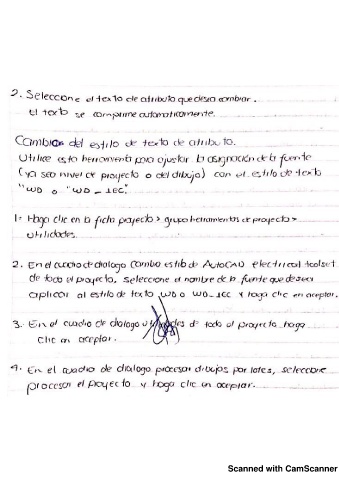 2. Seleccione el texto de atributo que desea cambiar.
El texto se comprime automaticamente.
Cambiar del estilo de texto de atributo.
Utilice esta herramienta para ajustar la asignación de la fuente
(ya sea nivel de proyecto o del dibujo) con el estilo de texto
"WD o "WD - IEC".
1- Haga clic en la ficha proyecto > grupo herramientas de proyecto >
Utilidades.
2. En el cuadro de dialogo Cambio estilo de AutoCAD electrical toolset
de todo el proyecto, seleccione el nombre de la fuente que desea
aplicar al estilo de texto WD o WD-IEC y haga clic en aceptar.
3. En el cuadro de dialogo de todo el proyecto haga
clic en aceptar.
4. En el cuadro de dialogo procesar dibujos por lotes, seleccione
procesar el Proyecto y haga clic en aceptar.
Scanned with CamScanner